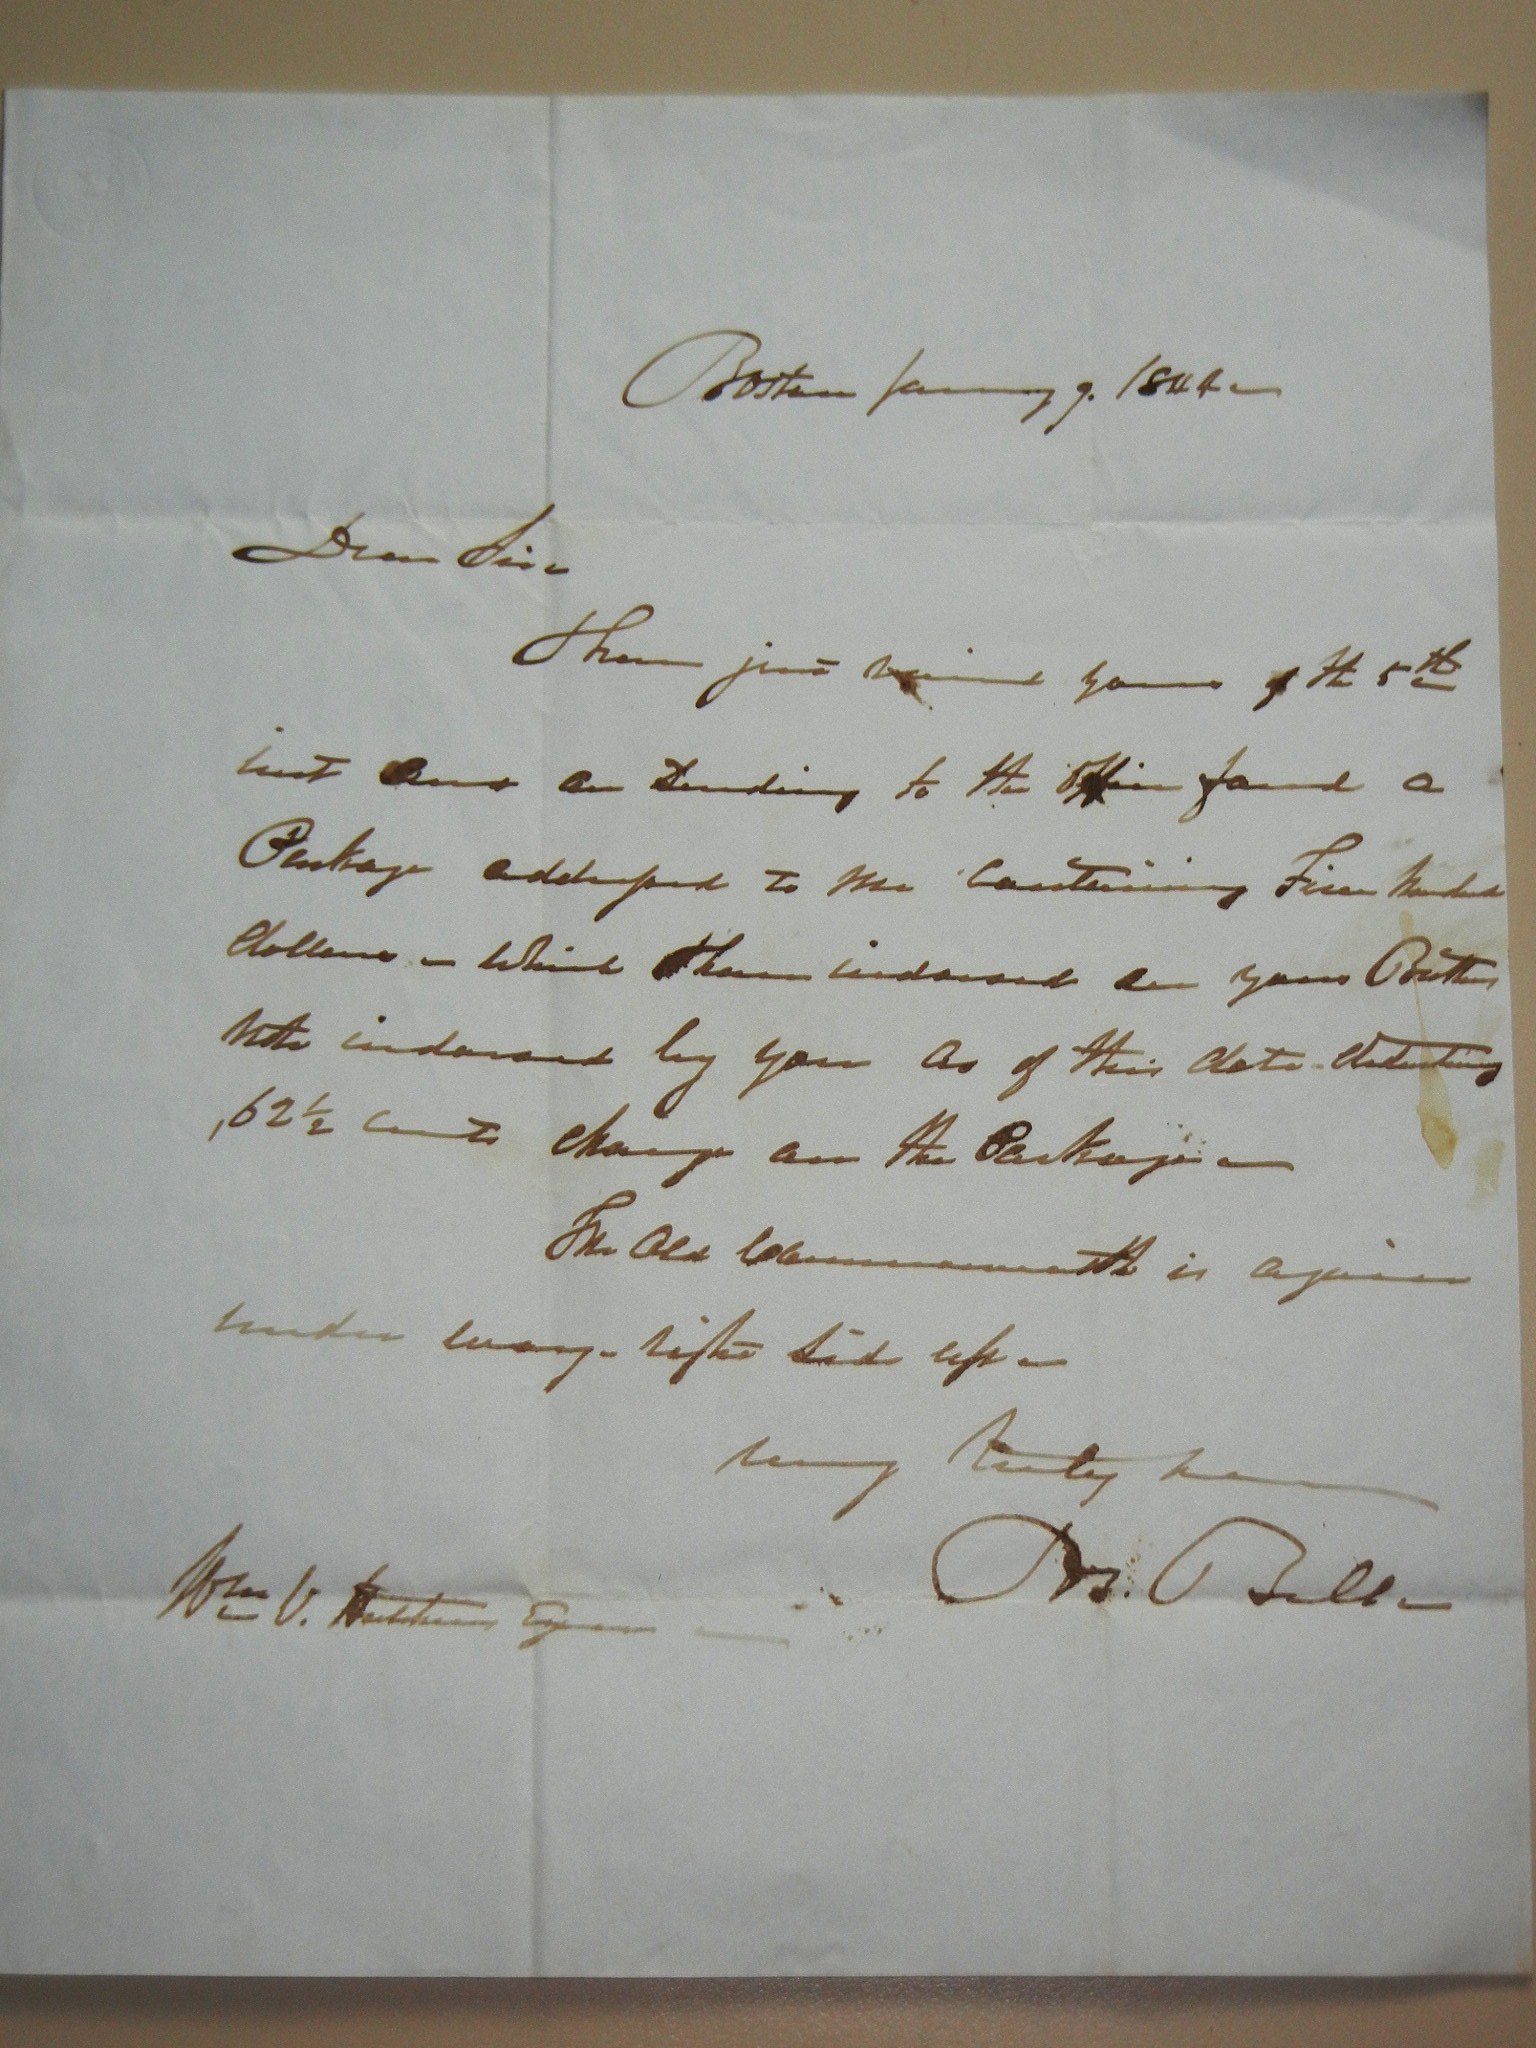 Boston January 9. 1844
Dear Sir
I have just received yours of the 5th
inst and on sending to the Office found a
Package addressed to me Containing Five hundred
dollars - which I have indorsed on your Brothers
Note indorsed by you as of this date - deducting
,62½ cents charge on the Package
The Old Commonwealth is again
under way - right side up
very truly yours
Jos. Bell
Wm V. Hutchins Esquire